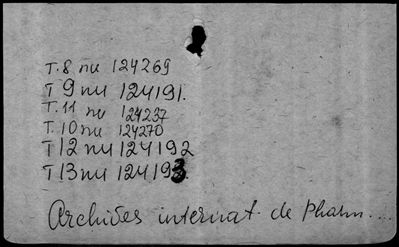 T. 8 nu 124269
T 9 nu 124191.
T. 11 nu 124237
T. 10 nu 124270
T 12 nu 124192
T 13 nu 124193
Archives internat. de Pharm....